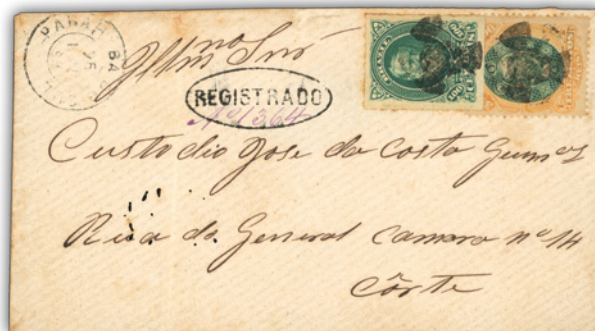 PARAHYBA
Illmo Snr
REGISTRADO
Nº 1364
100 100
Custodio Jose da Costa Guimes
Rua do General Camara nº 14
Côrte